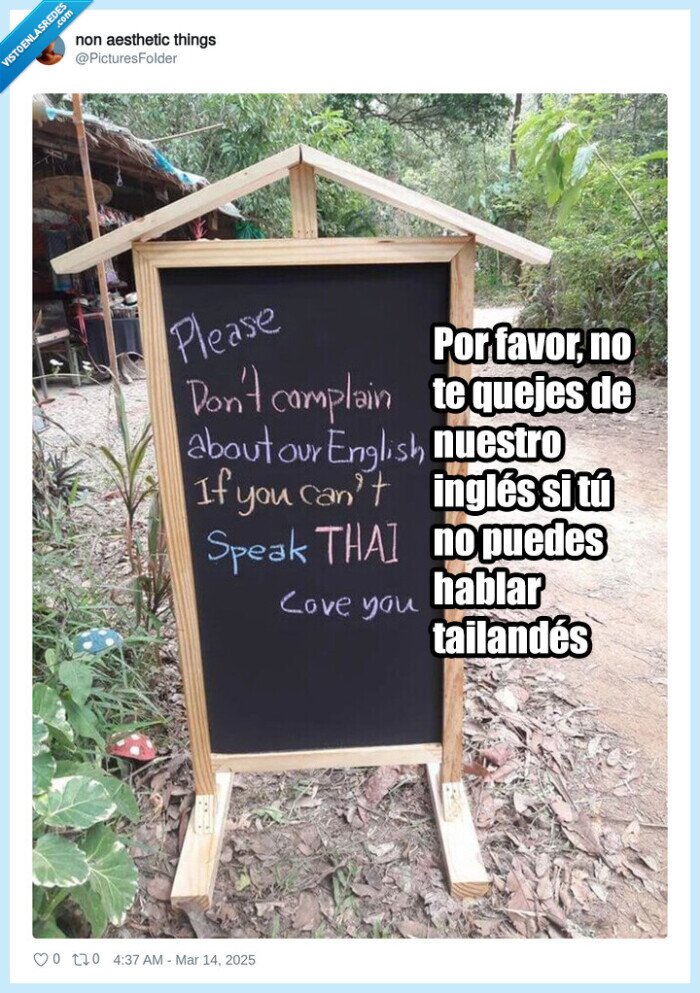 VISTOENLASREDES
.com
non aesthetic things
@PicturesFolder
Please
Don't complain
about our English
If you can't
Speak THAI
Love you
Por favor, no
te quejes de
nuestro
inglés si tú
no puedes
hablar
tailandés
0 0 4:37 AM - Mar 14, 2025